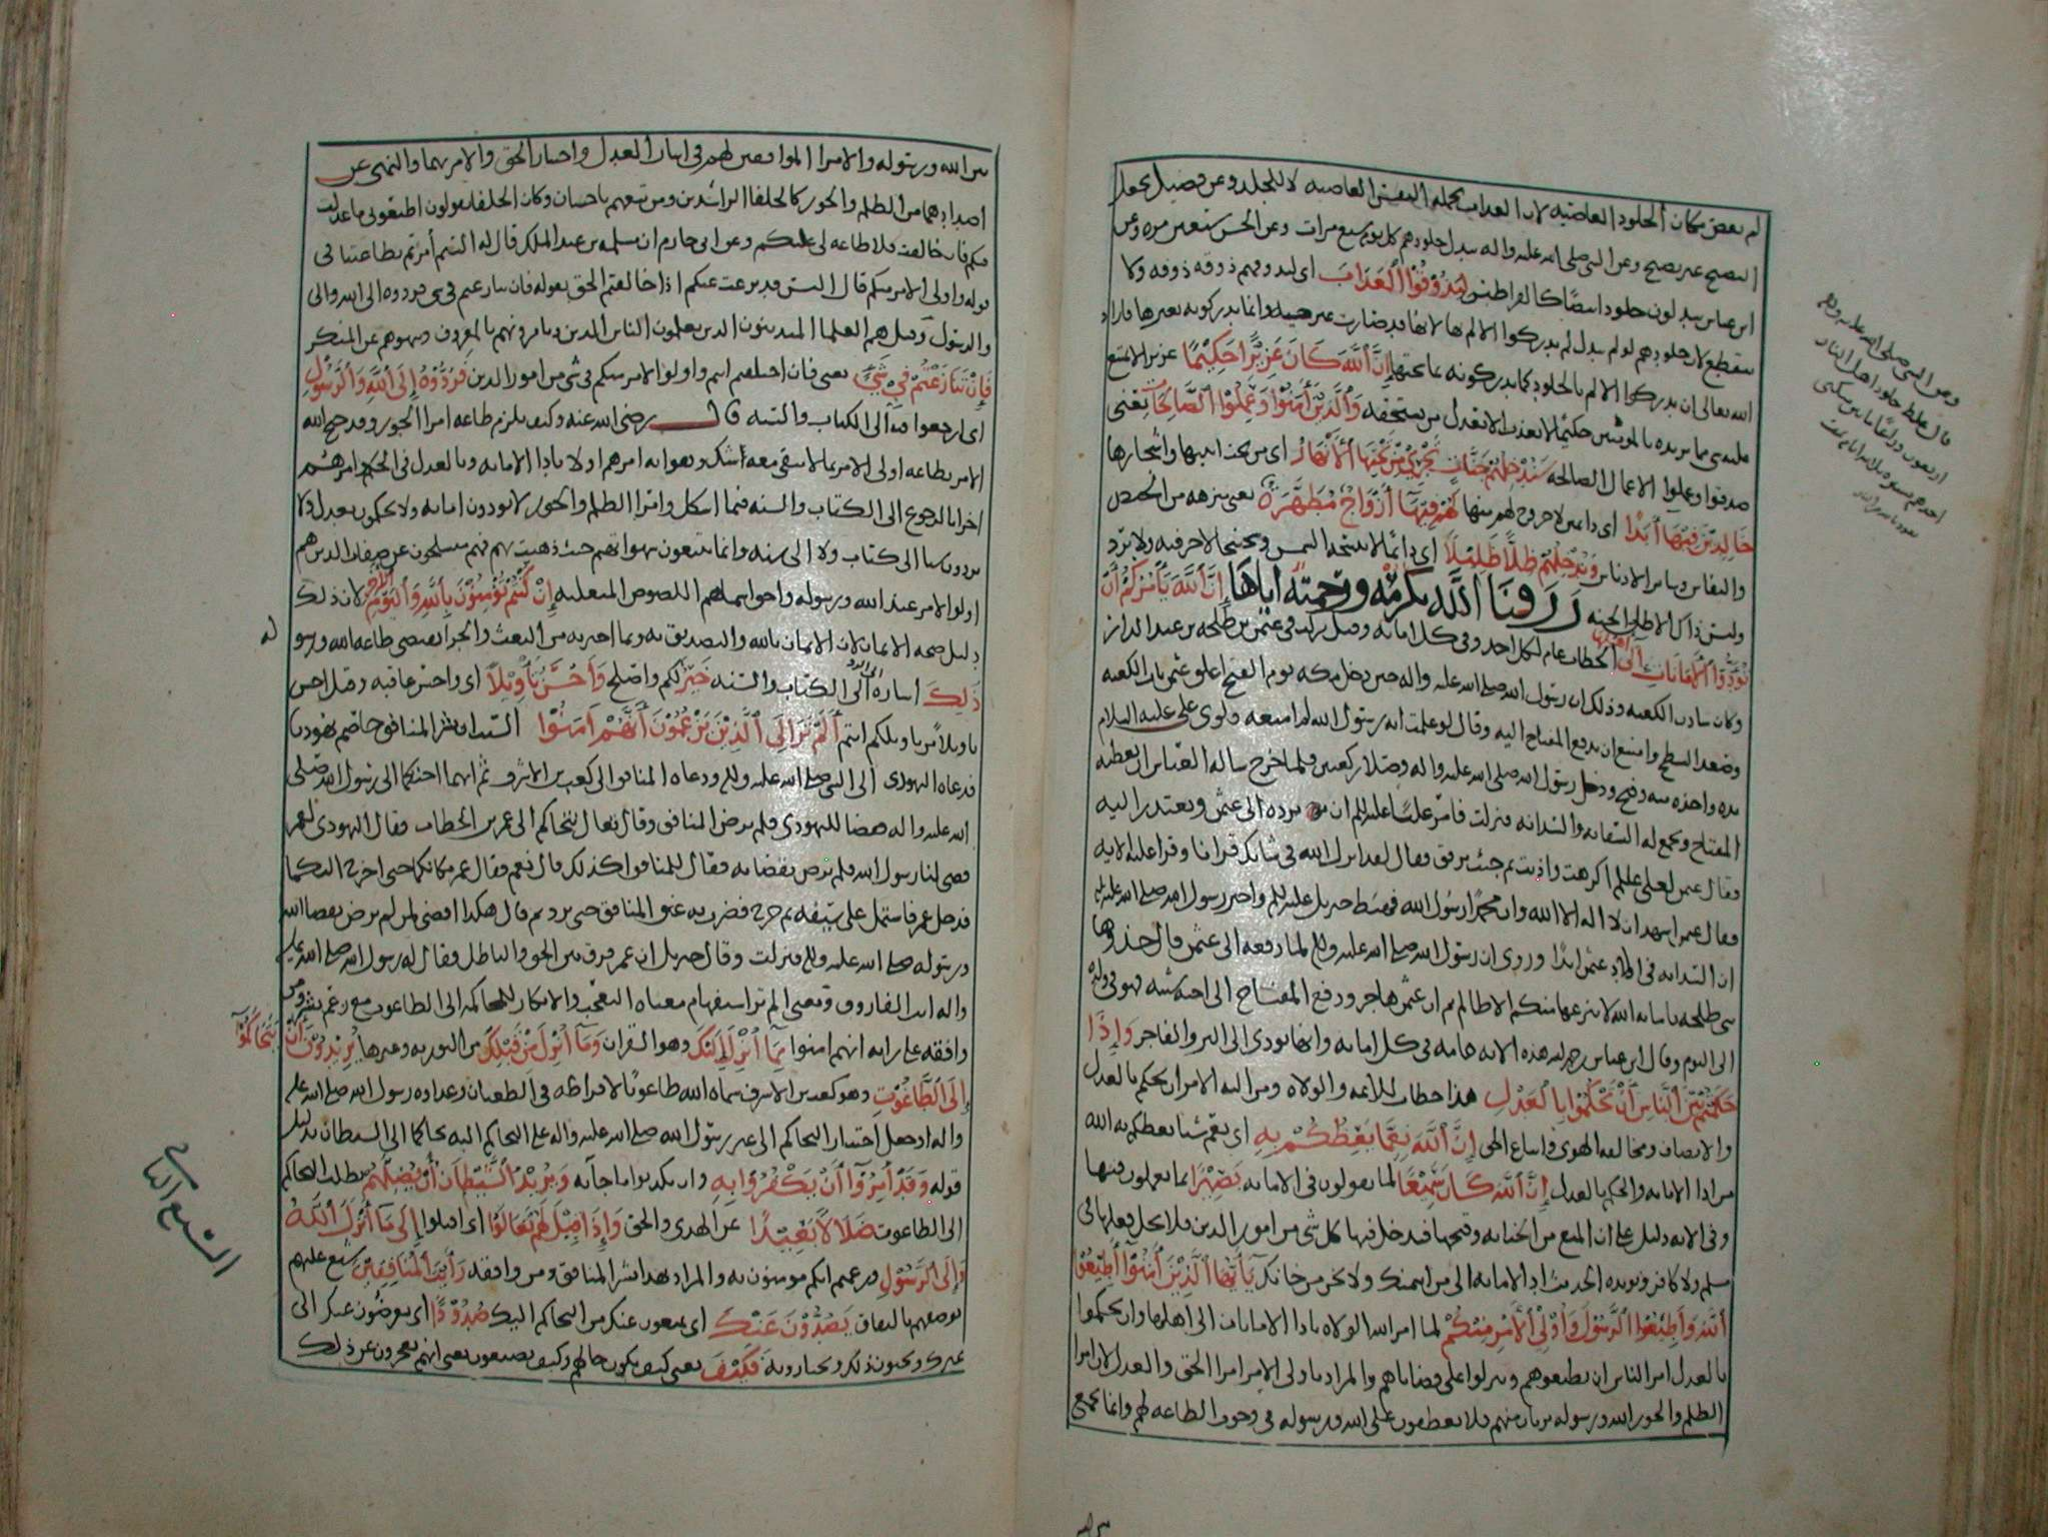 لم بعض مكان الجلود العاصيه لان العذاب بجمله النفس العاصيه لا للجلد وعن فضيل يجعل
النضيج غير نضيج وعن النبي صلى الله عليه واله تبدل جلودهم كل يوم سبع مرات وعن الحسن سبعين مره وعن
ابن عباس يبدلون جلودا بيضا كالقراطيس لِيَذُوقُوا الْعَذَابَ اي ليدوم لهم ذوقه ولا
ينقطع لان جلودهم لو لم تبدل لم يدركوا الالم بها لانها قد صارت غير حسيه وانما يدركونه بغيرها فاراد
الله تعالى ان يدركوا الالم بالجلود كما يدركونه بما تحتها إِنَّ اللَّهَ كَانَ عَزِيزًا حَكِيمًا عزيزا لا يمتنع
عليه شي مما يريده بالمؤمنين حكيما لا يعذب الا بعدل من يستحقه وَالَّذِينَ آمَنُوا وَعَمِلُوا الصَّالِحَاتِ يعني
صدقوا وعملوا الاعمال الصالحه سَنُدْخِلُهُمْ جَنَّاتٍ تَجْرِي مِنْ تَحْتِهَا الْأَنْهَارُ اي من تحت ابنيتها واشجارها
خَالِدِينَ فِيهَا أَبَدًا اي دايمين لا خروج لهم منها لَهُمْ فِيهَا أَزْوَاجٌ مُطَهَّرَةٌ يعني منزهه من الحيض
والنفاس وساير الادناس وَنُدْخِلُهُمْ ظِلًّا ظَلِيلًا اي دائما لا تنسخه الشمس وسجسجا لا حر فيه ولا برد
وليس ذاك الا ظل الجنه رزقنا الله بكرمه ورحمته اياها إِنَّ اللَّهَ يَأْمُرُكُمْ أَنْ
تُؤَدُّوا الْأَمَانَاتِ إِلَى أَهْلِهَا الخطاب عام لكل احد وفي كل امانه وقيل نزلت في عثمن بن طلحه بن عبد الدار
وكان سادن الكعبه وذلك ان رسول الله صلى الله عليه واله حين دخل مكه يوم الفتح اغلق عثمن باب الكعبه
وصعد السطح وامتنع ان يدفع المفتاح اليه وقال لو علمت انه رسول الله لم امنعه فلوى علي عليه السلام
يده واخذه منه وفتح ودخل رسول الله صلى الله عليه واله وصلا ركعتين فلما خرج ساله العباس ان يعطيه
المفتاح ويجمع له السقايه والسدانه فنزلت فامر عليا عليلم ان يرده الى عثمن ويعتذر اليه
وقال عثمن لعلي عليلم اكرهت واذيت ثم جئت ترفق فقال لقد انزل الله في شانك قرانا وقرا عليه الايه
فقال عثمن اشهد ان لا اله الا الله وان محمدا رسول الله فهبط جبريل عليلم واخبر رسول الله صلى الله عليه
ان السدانه في اولاد عثمن ابدا وروي ان رسول الله صلى الله عليه واله لما دفعه الى عثمن قال خذوها
بني طلحه بامانه الله لا ينزعها منكم الا ظالم ثم ان عثمن هاجر ودفع المفتاح الى اخيه شيبه فهو في ولده
الى اليوم وقال ابن عباس رحمه الله هذه الايه عامه في كل امانه وانها تودى الى البر والفاجر وَإِذَا
حَكَمْتُمْ بَيْنَ النَّاسِ أَنْ تَحْكُمُوا بِالْعَدْلِ هذا خطاب للايمه والولاه ومن اليه الامر ان يحكم بالعدل
والانصاف ومخالفه الهوى واتباع الحق إِنَّ اللَّهَ نِعِمَّا يَعِظُكُمْ بِهِ اي نعم شيئا يعظكم به الله
من ادا الامانه والحكم بالعدل إِنَّ اللَّهَ كَانَ سَمِيعًا لما تقولون في الامانه بَصِيرًا بما تعملون فيها
وفي الايه دليل على ان المنع من الخيانه وقبحها فيدخل فيها كل شي من امور الدين فلا يحل فعلها الى
مسلم ولا كافر ويؤيده الحديث اد الامانه الى من ايتمنك ولا تخن من خانك يَا أَيُّهَا الَّذِينَ آمَنُوا أَطِيعُوا
اللَّهَ وَأَطِيعُوا الرَّسُولَ وَأُولِي الْأَمْرِ مِنْكُمْ لما امر الله الولاه بادا الامانات الى اهلها وان يحكموا
بالعدل امر الناس ان يطيعوهم وينزلوا على قضاياهم والمراد باولي الامر امرا الحق والعدل لان امرا
الظلم والجور الله ورسوله بريان منهم فلا يعطفون على الله ورسوله في وجوب الطاعه لهم وانما يجمع
وعن النبي صلى الله عليه واله
قال غلظ جلود اهل النار
اربعون ذراعا
بين الله ورسوله والامرا الموافقين لهم في ايثار العدل واختيار الحق والامر بهما والنهي عن
اضدادهما من الظلم والجور كالخلفا الراشدين ومن تبعهم باحسان وكان الخلفا يقولون اطيعوني ما عدلت
فيكم فان خالفت فلا طاعه لي عليكم وعن ابي حازم ان مسلمه بن عبد الملك قال له الستم امرتم بطاعتنا في
قوله واولي الامر منكم قال اليس قد نزعت عنكم اذا خالفتم الحق بقوله فان تنازعتم في شي فردوه الى الله والى
والرسول وقيل هم العلما المتدينون الذين يعلمون الناس الدين ويامرونهم بالمعروف وينهوهم عن المنكر
فَإِنْ تَنَازَعْتُمْ فِي شَيْءٍ يعني فان اختلفتم انتم واولوا الامر منكم في شي من امور الدين فَرُدُّوهُ إِلَى اللَّهِ وَالرَّسُولِ
اي ارجعوا فيه الى الكتاب والسنه قال رضي الله عنه وكيف يلزم طاعه امرا الجور وقد جنح الله
الامر بطاعه اولي الامر بما لا يبقى معه شك وهو انه امرهم اولا بادا الامانه وبالعدل في الحكم وامرهم
اخرا بالرجوع الى الكتاب والسنه فيما اشكل وامرا الظلم والجور لا يودون امانه ولا يحكمون بعدل ولا
يردون شيا الى كتاب ولا الى سنه وانما يتبعون شهواتهم حيث ذهبت بهم فهم منسلخون عن صفات الذين هم
اولوا الامر عند الله ورسوله واحق اسمايهم اللصوص المتغلبه إِنْ كُنْتُمْ تُؤْمِنُونَ بِاللَّهِ وَالْيَوْمِ الْآخِرِ لان ذلك
دليل صحه الايمان لان الايمان بالله والتصديق به وبما اخبر به من البعث والجزا يقتضي طاعه الله ورسو
له
ذَلِكَ اشاره الى الرد الى الكتاب والسنه خَيْرٌ لكم واصلح وَأَحْسَنُ تَأْوِيلًا اي واحسن عاقبه وقيل احسن
تاويلا من تاويلكم انتم أَلَمْ تَرَ إِلَى الَّذِينَ يَزْعُمُونَ أَنَّهُمْ آمَنُوا بشر المنافق خاصم يهوديا
فدعاه اليهودي الى النبي صلى الله عليه واله ودعاه المنافق الى كعب بن الاشرف ثم انهما احتكما الى رسول الله صلى
الله عليه واله فقضا لليهودي فلم يرض المنافق وقال تعال نتحاكم الى عمر بن الخطاب فقال اليهودي لعمر
قضى لنا رسول الله فلم يرض بقضايه فقال للمنافق اكذلك قال نعم فقال عمر مكانكما حتى اخرج اليكما
فدخل عمر فاشتمل على سيفه ثم خرج فضرب به عنق المنافق حتى برد ثم قال هكذا اقضي لمن لم يرض بقضا الله
ورسوله صلى الله عليه واله فنزلت وقال جبريل ان عمر فرق بين الحق والباطل فقال له رسول الله صلى الله عليه
واله انت الفاروق ومعنى الم تر استفهام معناه التعجب والانكار للمحاكمه الى الطاغوت مع زعم بشر ومن
وافقه على رايه انهم امنوا بِمَا أُنْزِلَ إِلَيْكَ وهو القران وَمَا أُنْزِلَ مِنْ قَبْلِكَ من التوريه وغيرها يُرِيدُونَ أَنْ يَتَحَاكَمُوا
إِلَى الطَّاغُوتِ وهو كعب بن الاشرف سماه الله طاغوتا لافراطه في الطغيان وعداوه رسول الله صلى الله عليه
واله او جعل اختيار التحاكم الى غير رسول الله صلى الله عليه واله على التحاكم اليه تحاكما الى الشيطان بدليل
قوله وَقَدْ أُمِرُوا أَنْ يَكْفُرُوا بِهِ وان يكذبوا ما جا به وَيُرِيدُ الشَّيْطَانُ أَنْ يُضِلَّهُمْ بطلب التحاكم
الى الطاغوت ضَلَالًا بَعِيدًا عن الهدى والحق وَإِذَا قِيلَ لَهُمْ تَعَالَوْا اي اقبلوا إِلَى مَا أَنْزَلَ اللَّهُ
وَإِلَى الرَّسُولِ وزعمتم انكم مومنون به والمراد بهذا بشر المنافق ومن وافقه رَأَيْتَ الْمُنَافِقِينَ
بوصفهم بالنفاق يَصُدُّونَ عَنْكَ اي يمنعون عنك من التحاكم اليك صُدُودًا اي يعرضون عنك الى
غيرك ويحبون ذلك ويختارونه فَكَيْفَ يعني كيف يكون حالهم وكيف يصنعون يعني انهم يعجزون عن ذلك